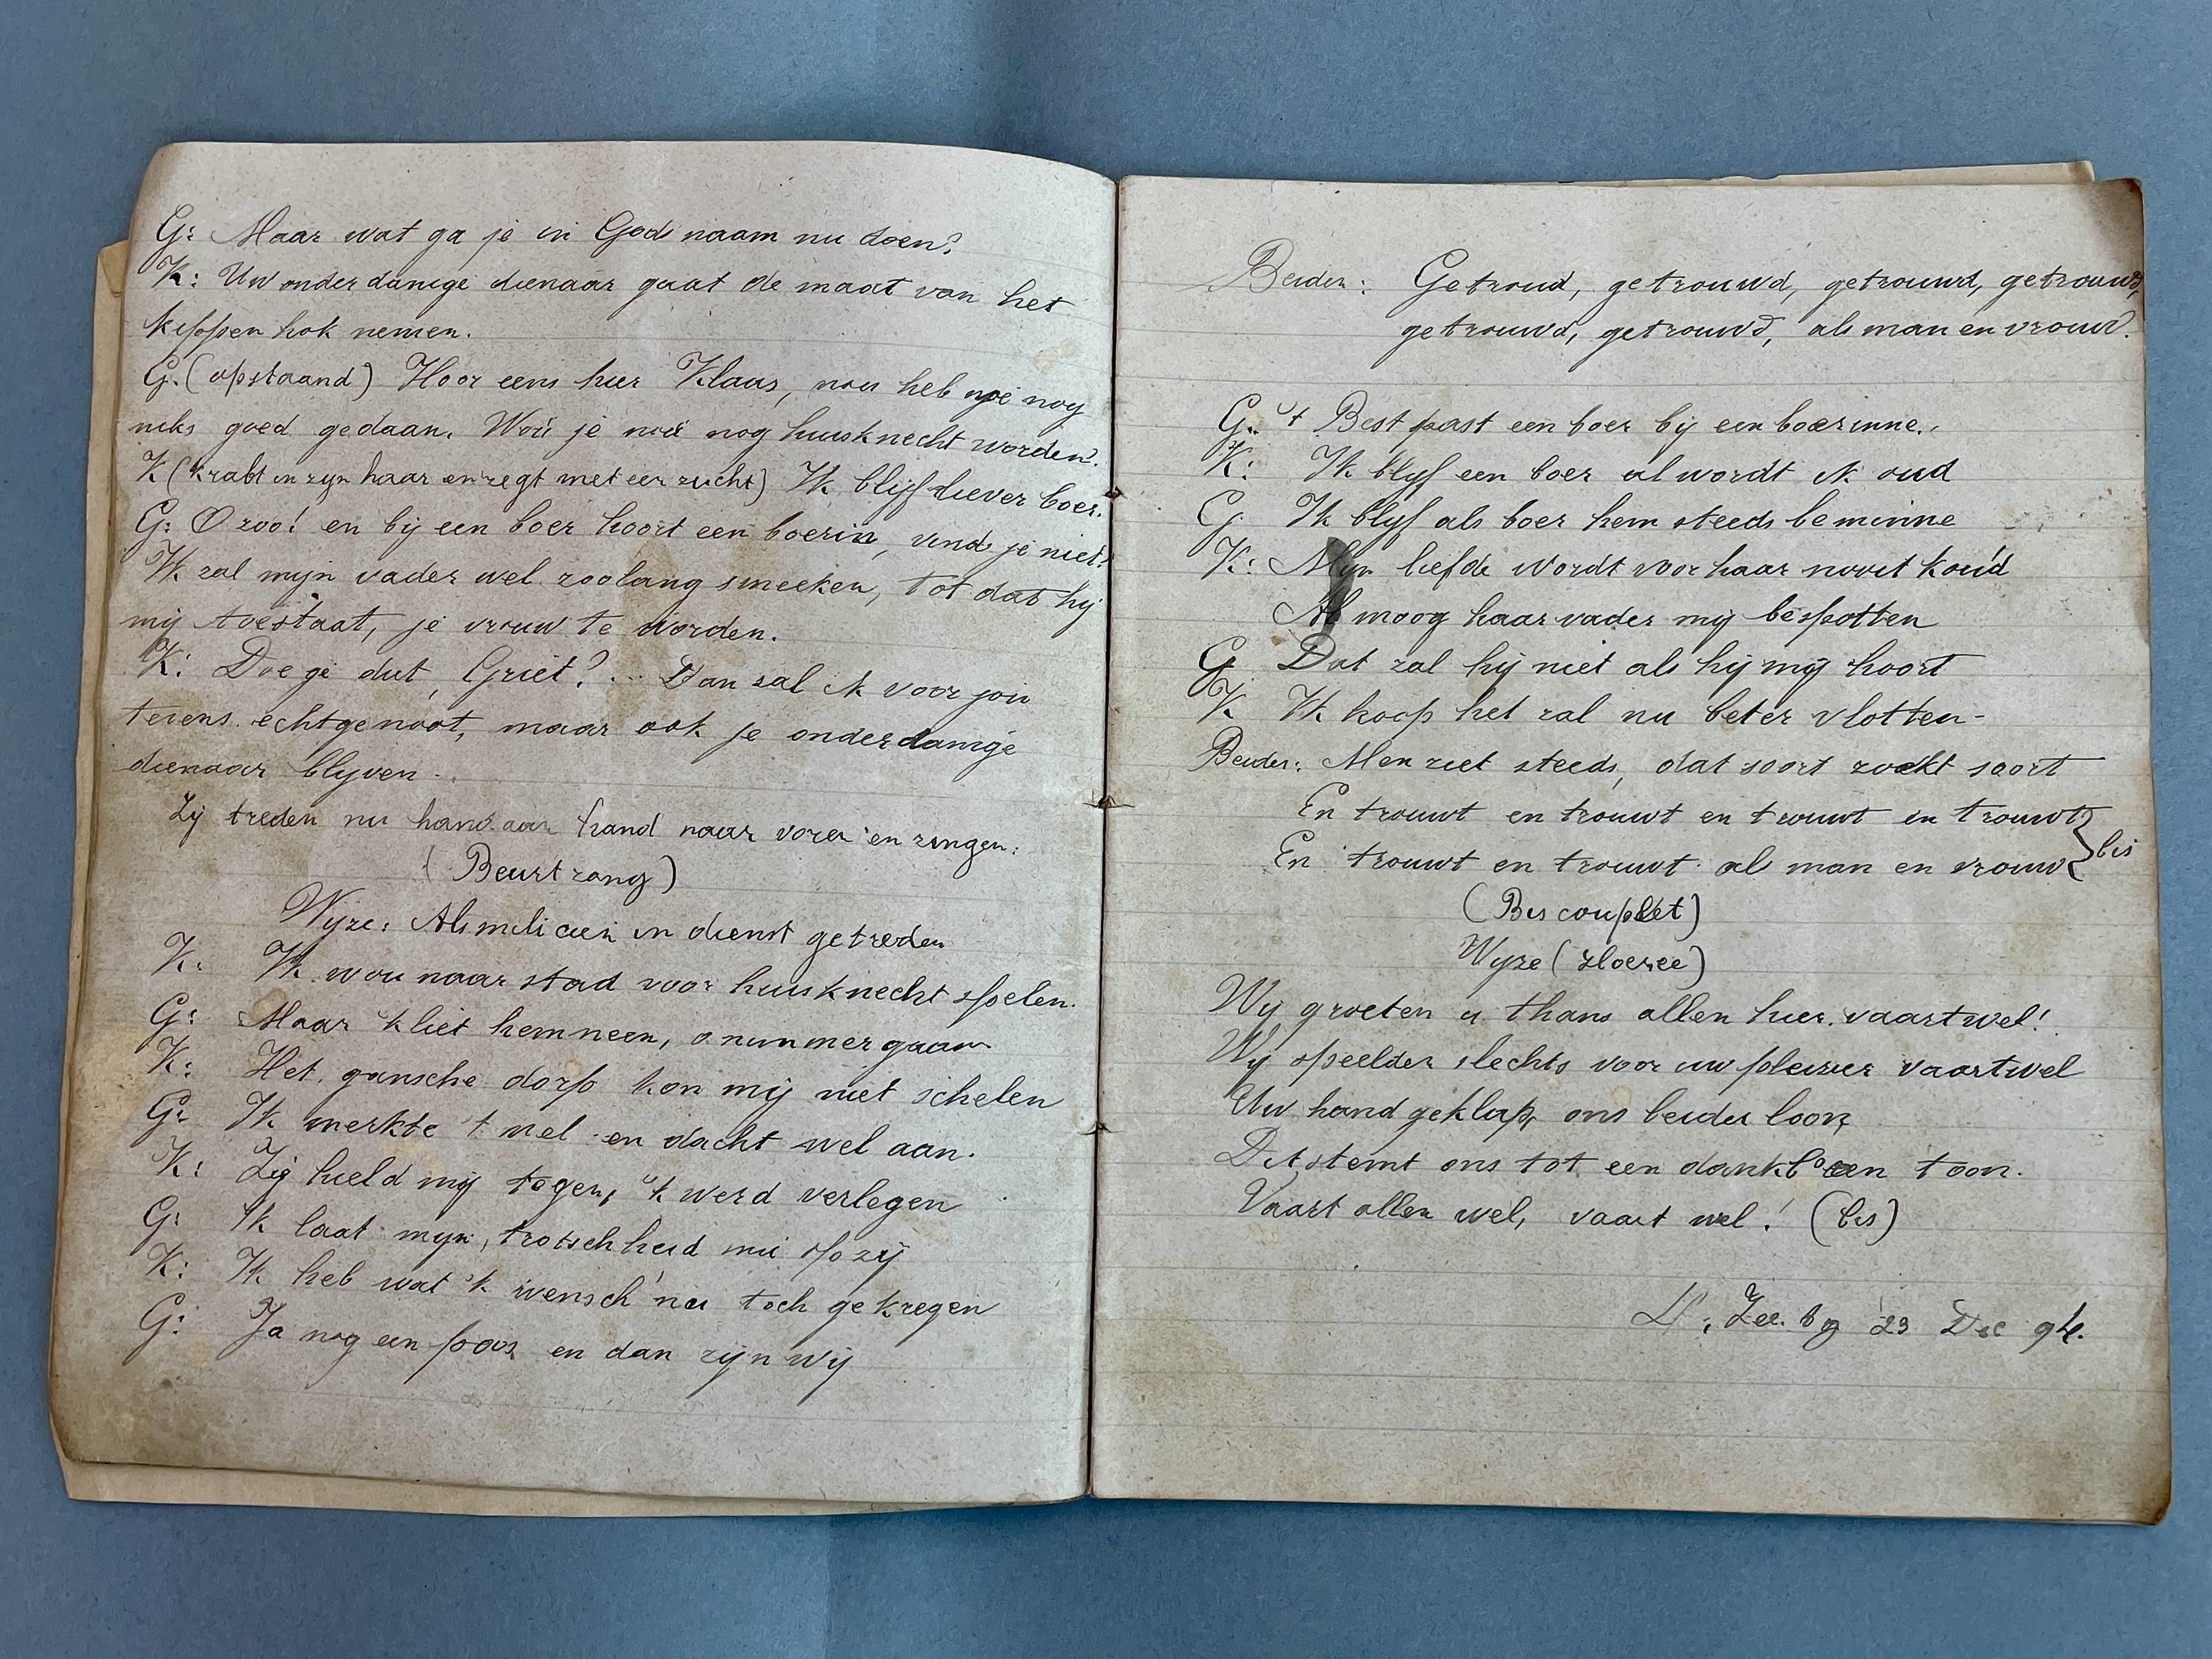 G: Maar wat ga je in Gods naam nu doen?
K: Uw onderdanige dienaar gaat de maat van het
kippen hok nemen.
G. (opstaand) Hoor eens hier Klaas, nou heb je nog
niks goed gedaan. Wou je nou nog huisknecht worden?
K (krabt in zyn haar en zegt met een zucht) Ik blijf liever boer.
G: O zoo! en bij een boer hoort een boerin, vindt je niet?
Ik zal mijn vader wel zoolang smeeken, tot dat hij
mij toestaat, je vrouw te worden.
K: Doe ge dat, Griet? ... Dan sal ik voor jou
tevens echtgenoot, maar ook je onderdanige
dienaar blyven.
Zij treden nu hand aan hand naar voren en zingen:
(Beurtzang)
Wyze: Als milicien in dienst getreden
K: Ik wou naar stad voor huisknecht spelen.
G: Maar 'k liet hem neen, o nimmer gaan
K: Het gansche dorp kon mij niet schelen
G: Ik merkte 't wel en dacht wel aan.
K: Zij hield mij tegen, 'k werd verlegen
G: Ik laat myn trotschheid nu op zij
K: Ik heb wat 'k wensch nu toch gekregen
G: Ja nog een poos en dan zijn wij
Beiden: Getroud, getrouwd, getrouwd, getrouwd,
getrouwd, getrouwd, als man en vrouw.
G. 't Best past een boer bij een boerinne.
K: Ik blyf een boer al wordt ik oud
G Ik blyf als boer hem steeds beminne
K: Myn liefde wordt voor haar nooit koud
Al moog haar vader mij bespotten
G Dat zal hij niet als hij mij hoort
K Ik hoop het zal nu beter vlotten-
Beiden: Men ziet steeds, dat soort zoekt soort
En trouwt en trouwt en trouwt en trouwt
En trouwt en trouwt als man en vrouw } bis
(Bis couplet)
Wyze ()
Wij groeten u thans allen hier vaartwel!
Wy speelden slechts voor uw pleizier vaartwel
Uw handgeklap, ons beider loon,
Dit stemt ons tot een dankb'ren toon.
Vaart allen wel, vaart wel! (bis)
Zee. 23 Dec 94.